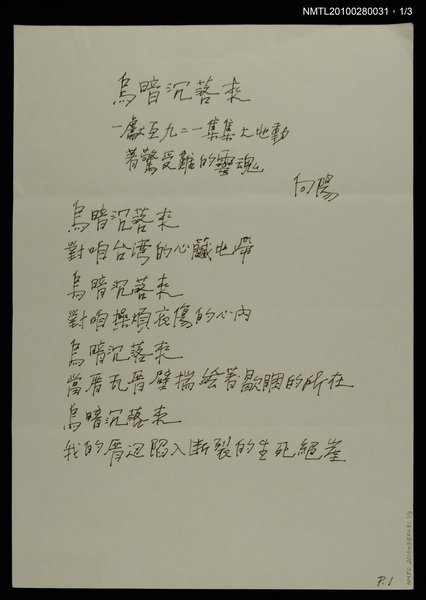 NMTL20100280031，1/3
烏暗沉落來
—獻互九二一集集大地動
著驚受難的靈魂
向陽
烏暗沉落來
對咱台灣的心臟地帶
烏暗沉落來
對咱操煩哀傷的心內
烏暗沉落來
當厝瓦厝壁揣無著歇睏的所在
烏暗沉落來
我的厝邊陷入斷裂的生死絕崖
P.1
NMTL20100280031 1/3